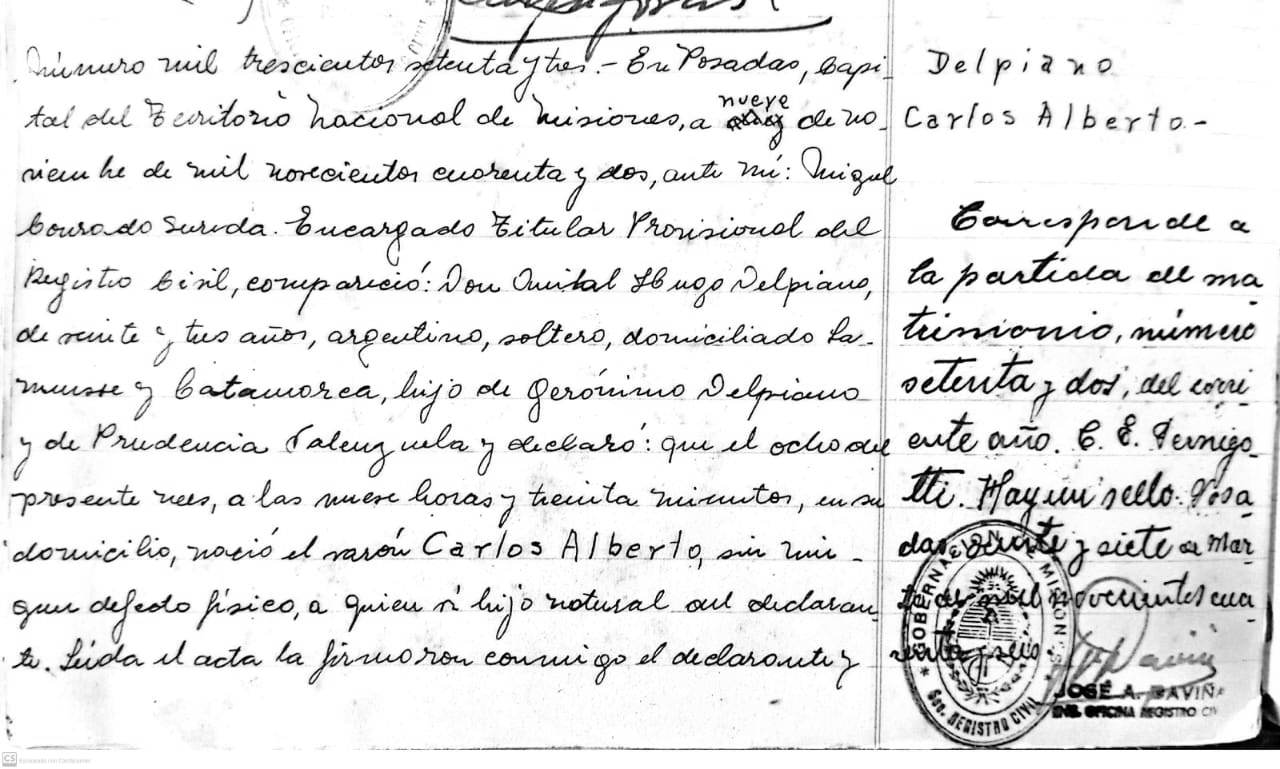 Número mil trescientos setenta y tres.- En Posadas, Capi-
tal del Territorio Nacional de Misiones, a nueve de no-
viembre de mil novecientos cuarenta y dos, ante mí: Miguel
Conrado Sureda. Encargado Titular Provisional del
Registro Civil, compareció: Don Anibal Hugo Delpiano,
de veinte y tres años, argentino, soltero, domiciliado La-
musse y Catamarca, hijo de Gerónimo Delpiano
y de Prudencia Valenzuela y declaró: que el ocho del
presente mes, a las nueve horas y treinta minutos, en su
domicilio, nació el varón Carlos Alberto, sin nin-
gun defecto físico, a quien vi hijo natural del declaran-
te. Leída el acta la firmaron conmigo el declarante y
Delpiano
Carlos Alberto.-
Corresponde a
la partida de ma-
trimonio, número
setenta y dos, del corri-
ente año. C. E. Pernigo-
tti. Hay un sello. Posa-
das, veinte y siete de Mar-
zo de mil novecientos cua-
renta y seis.
GOBERNACION MISIONES
Sec. REGISTRO CIVIL
JOSÉ A. DAVIÑA
ENC. OFICINA REGISTRO CIV
CS Escaneado con CamScanner